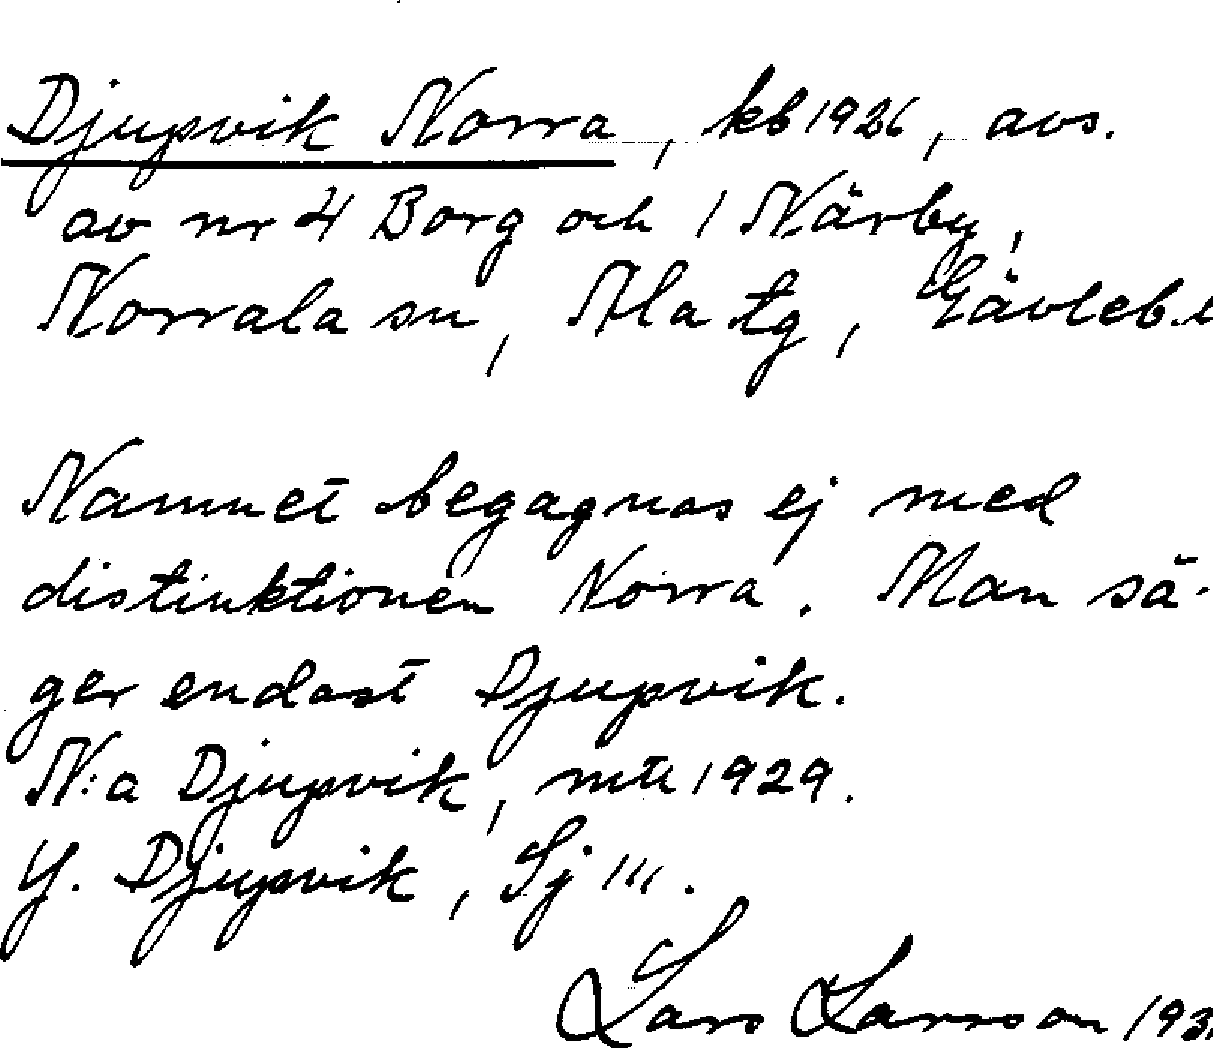 Djupvik Norra, kb 1926, avs.
av nr 4 Borg och 1 Närby,
Norrala sn, Ala tg, Gävleb.l
Namnet begagnas ej med
distinktionen Norra. Man sä-
ger endast Djupvik.
N:a Djupvik, mtl 1929.
Y. Djupvik, Sj III.
Lars Larsson 193